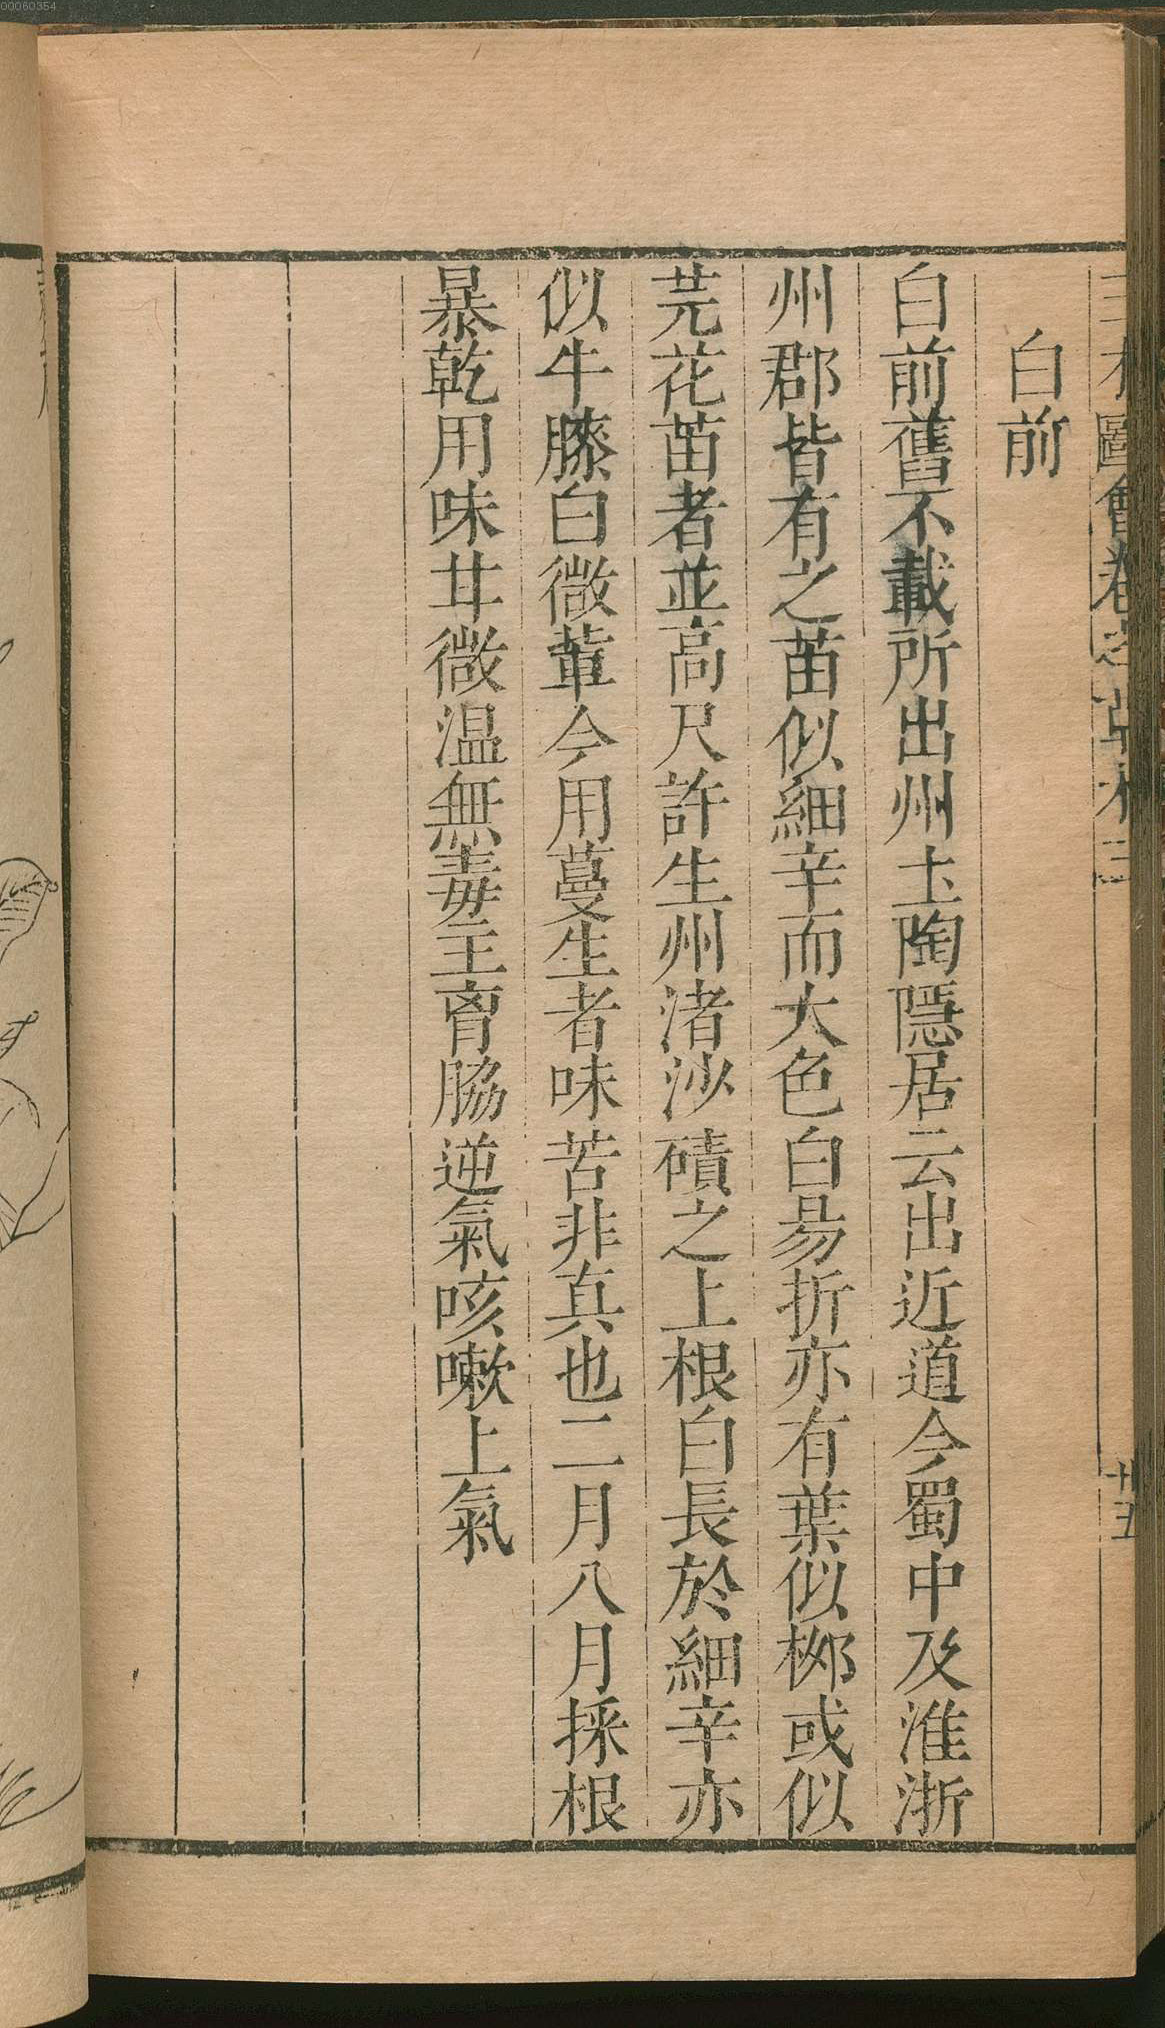 00060354
圖會卷 草木三
廿五
白前
白前舊不載所出州土陶隱居云出近道今蜀中及淮浙
州郡皆有之苗似細辛而大色白昜折亦有葉似桞或似
芫花苗者並高尺許生州渚沙磧之上根白長於細辛亦
似牛膝白微軰今用蔓生者味苦非真也二月八月採根
暴乾用味甘微温無毒主胷脇逆氣咳嗽上氣